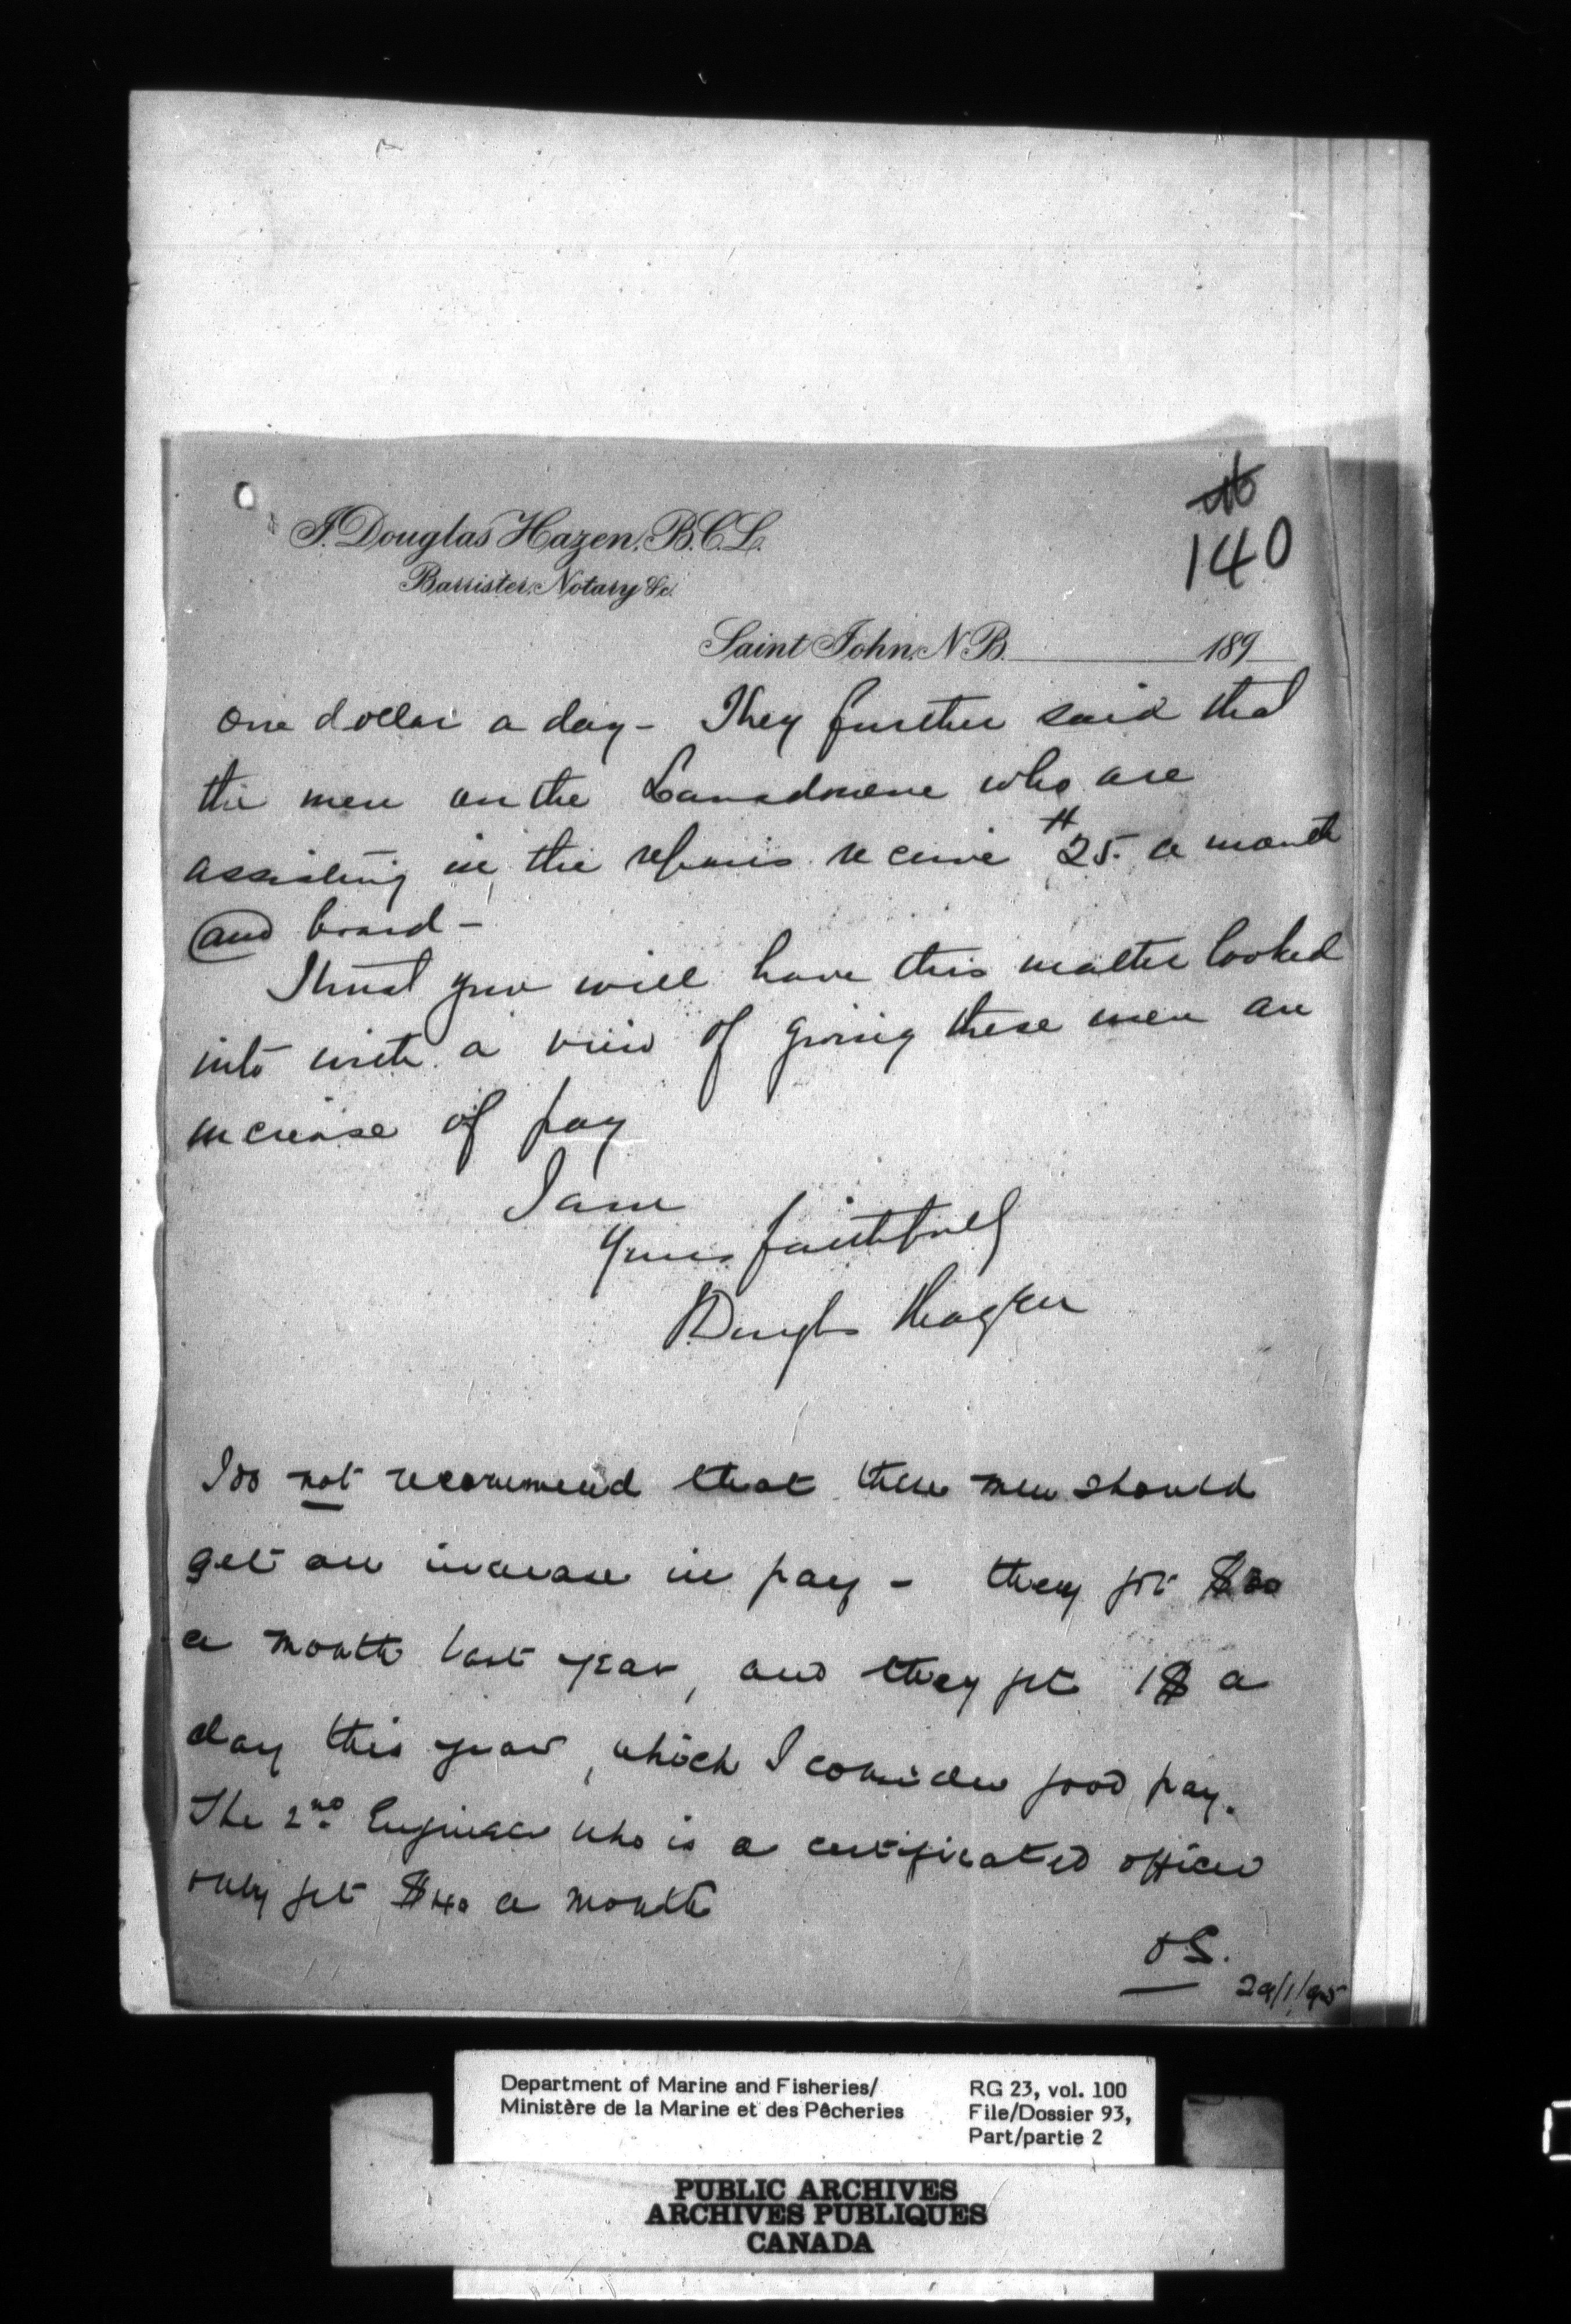 140
J. Douglas Hazen, B.C.L.
Barrister, Notary &c.
Saint John, N.B. 189
one dollar a day - They further said that
the men on the Lansdowne who are
assisting in the repairs receive $25. a month
and board -
I trust you will have this matter looked
into with a view of giving these men an
increase of pay
I am
Yours faithfully
J Douglas Hazen
I do not recommend that these men should
get an increase in pay - they got $20
a month last year, and they get 1$ a
day this year, which I consider good pay.
The 2nd Engineer who is a certificated officer
only get $40 a month
OS.
29/1/95
Department of Marine and Fisheries/
Ministère de la Marine et des Pêcheries
RG 23, vol. 100
File/Dossier 93,
Part/partie 2
PUBLIC ARCHIVES
ARCHIVES PUBLIQUES
CANADA